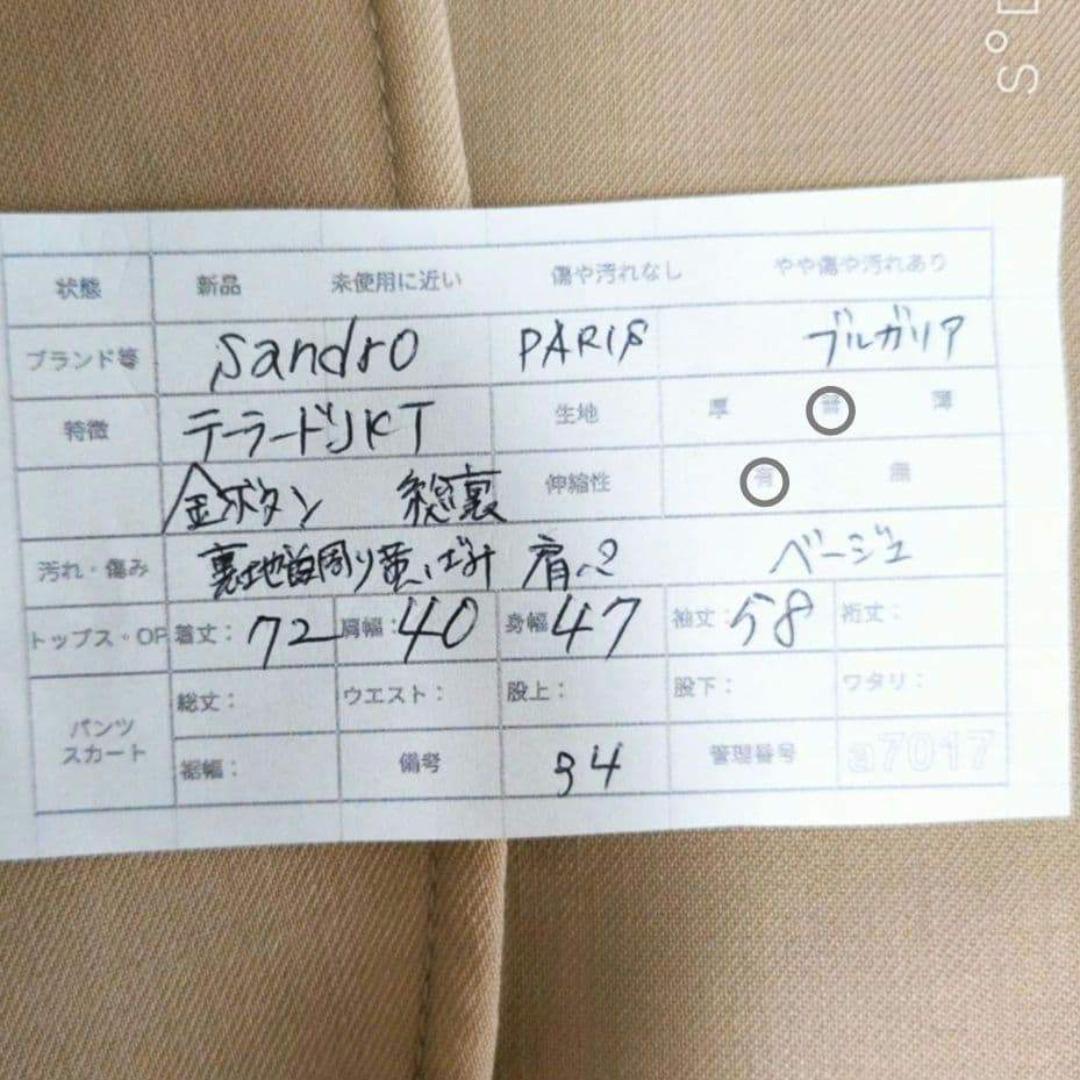 S°
状態 新品 未使用に近い 傷や汚れなし やや傷や汚れあり
ブランド等 sandro PARIS ブルガリア
特徴 テーラードJKT 生地 厚 普 薄
金ボタン 総裏 伸縮性 有 無
汚れ・傷み 裏地首周り黄ばみ 肩 ベージュ
トップス・OP 着丈：72 肩幅：40 身幅47 袖丈：58 裄丈：
パンツ スカート 総丈： ウエスト： 股上： 股下： ワタリ：
裾幅： 備考 34 管理番号 a7017